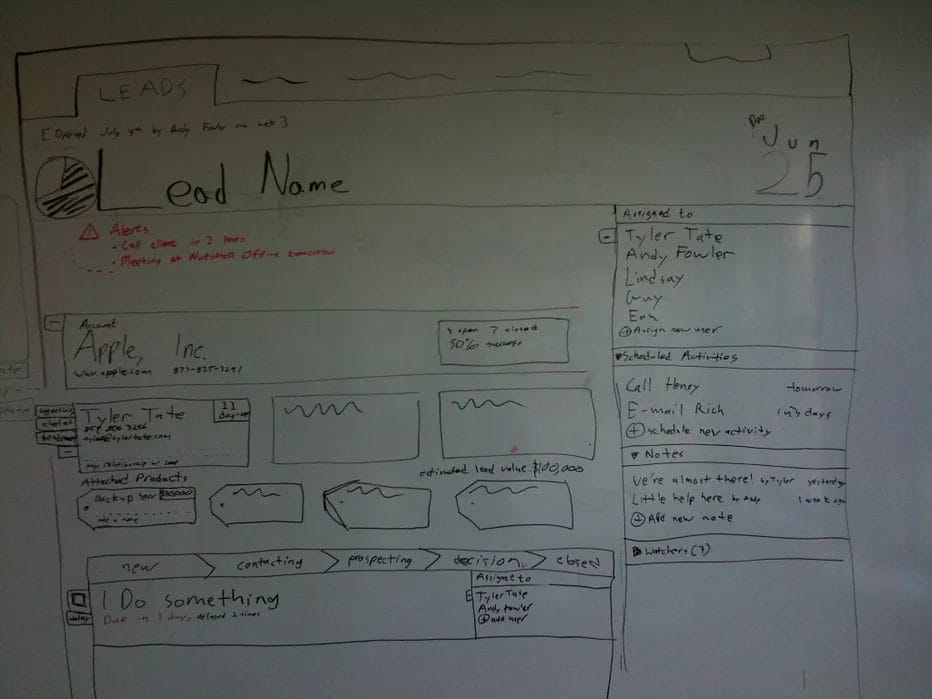 LEADS
[Opened July 4th by Andy Fowler via web]
Lead Name
Due
Jun
25
Alerts
• Call client in 2 hours
• Meeting at Nutshell Office tomorrow
Account
Apple, Inc.
www.apple.com 877-825-7291
3 open 7 closed
50% success
Tyler Tate
tyler@tylertate.com
11
days ago
estimated lead value: $100,000
Attached Products
Backup Serv
add a note
new
contacting
prospecting
decision
closed
I Do something
Due in 1 day, delayed 2 times
delay
Assigned to
Tyler Tate
Andy Fowler
+ add user
Assigned to
Tyler Tate
Andy Fowler
Lindsay
Guy
Ean
+ Assign new user
Scheduled Activities
Call Henry tomorrow
E-mail Rich in 3 days
+ schedule new activity
Notes
We're almost there! by Tyler yesterday
Little help here by Andy 1 week ago
+ Add new note
Watchers (3)